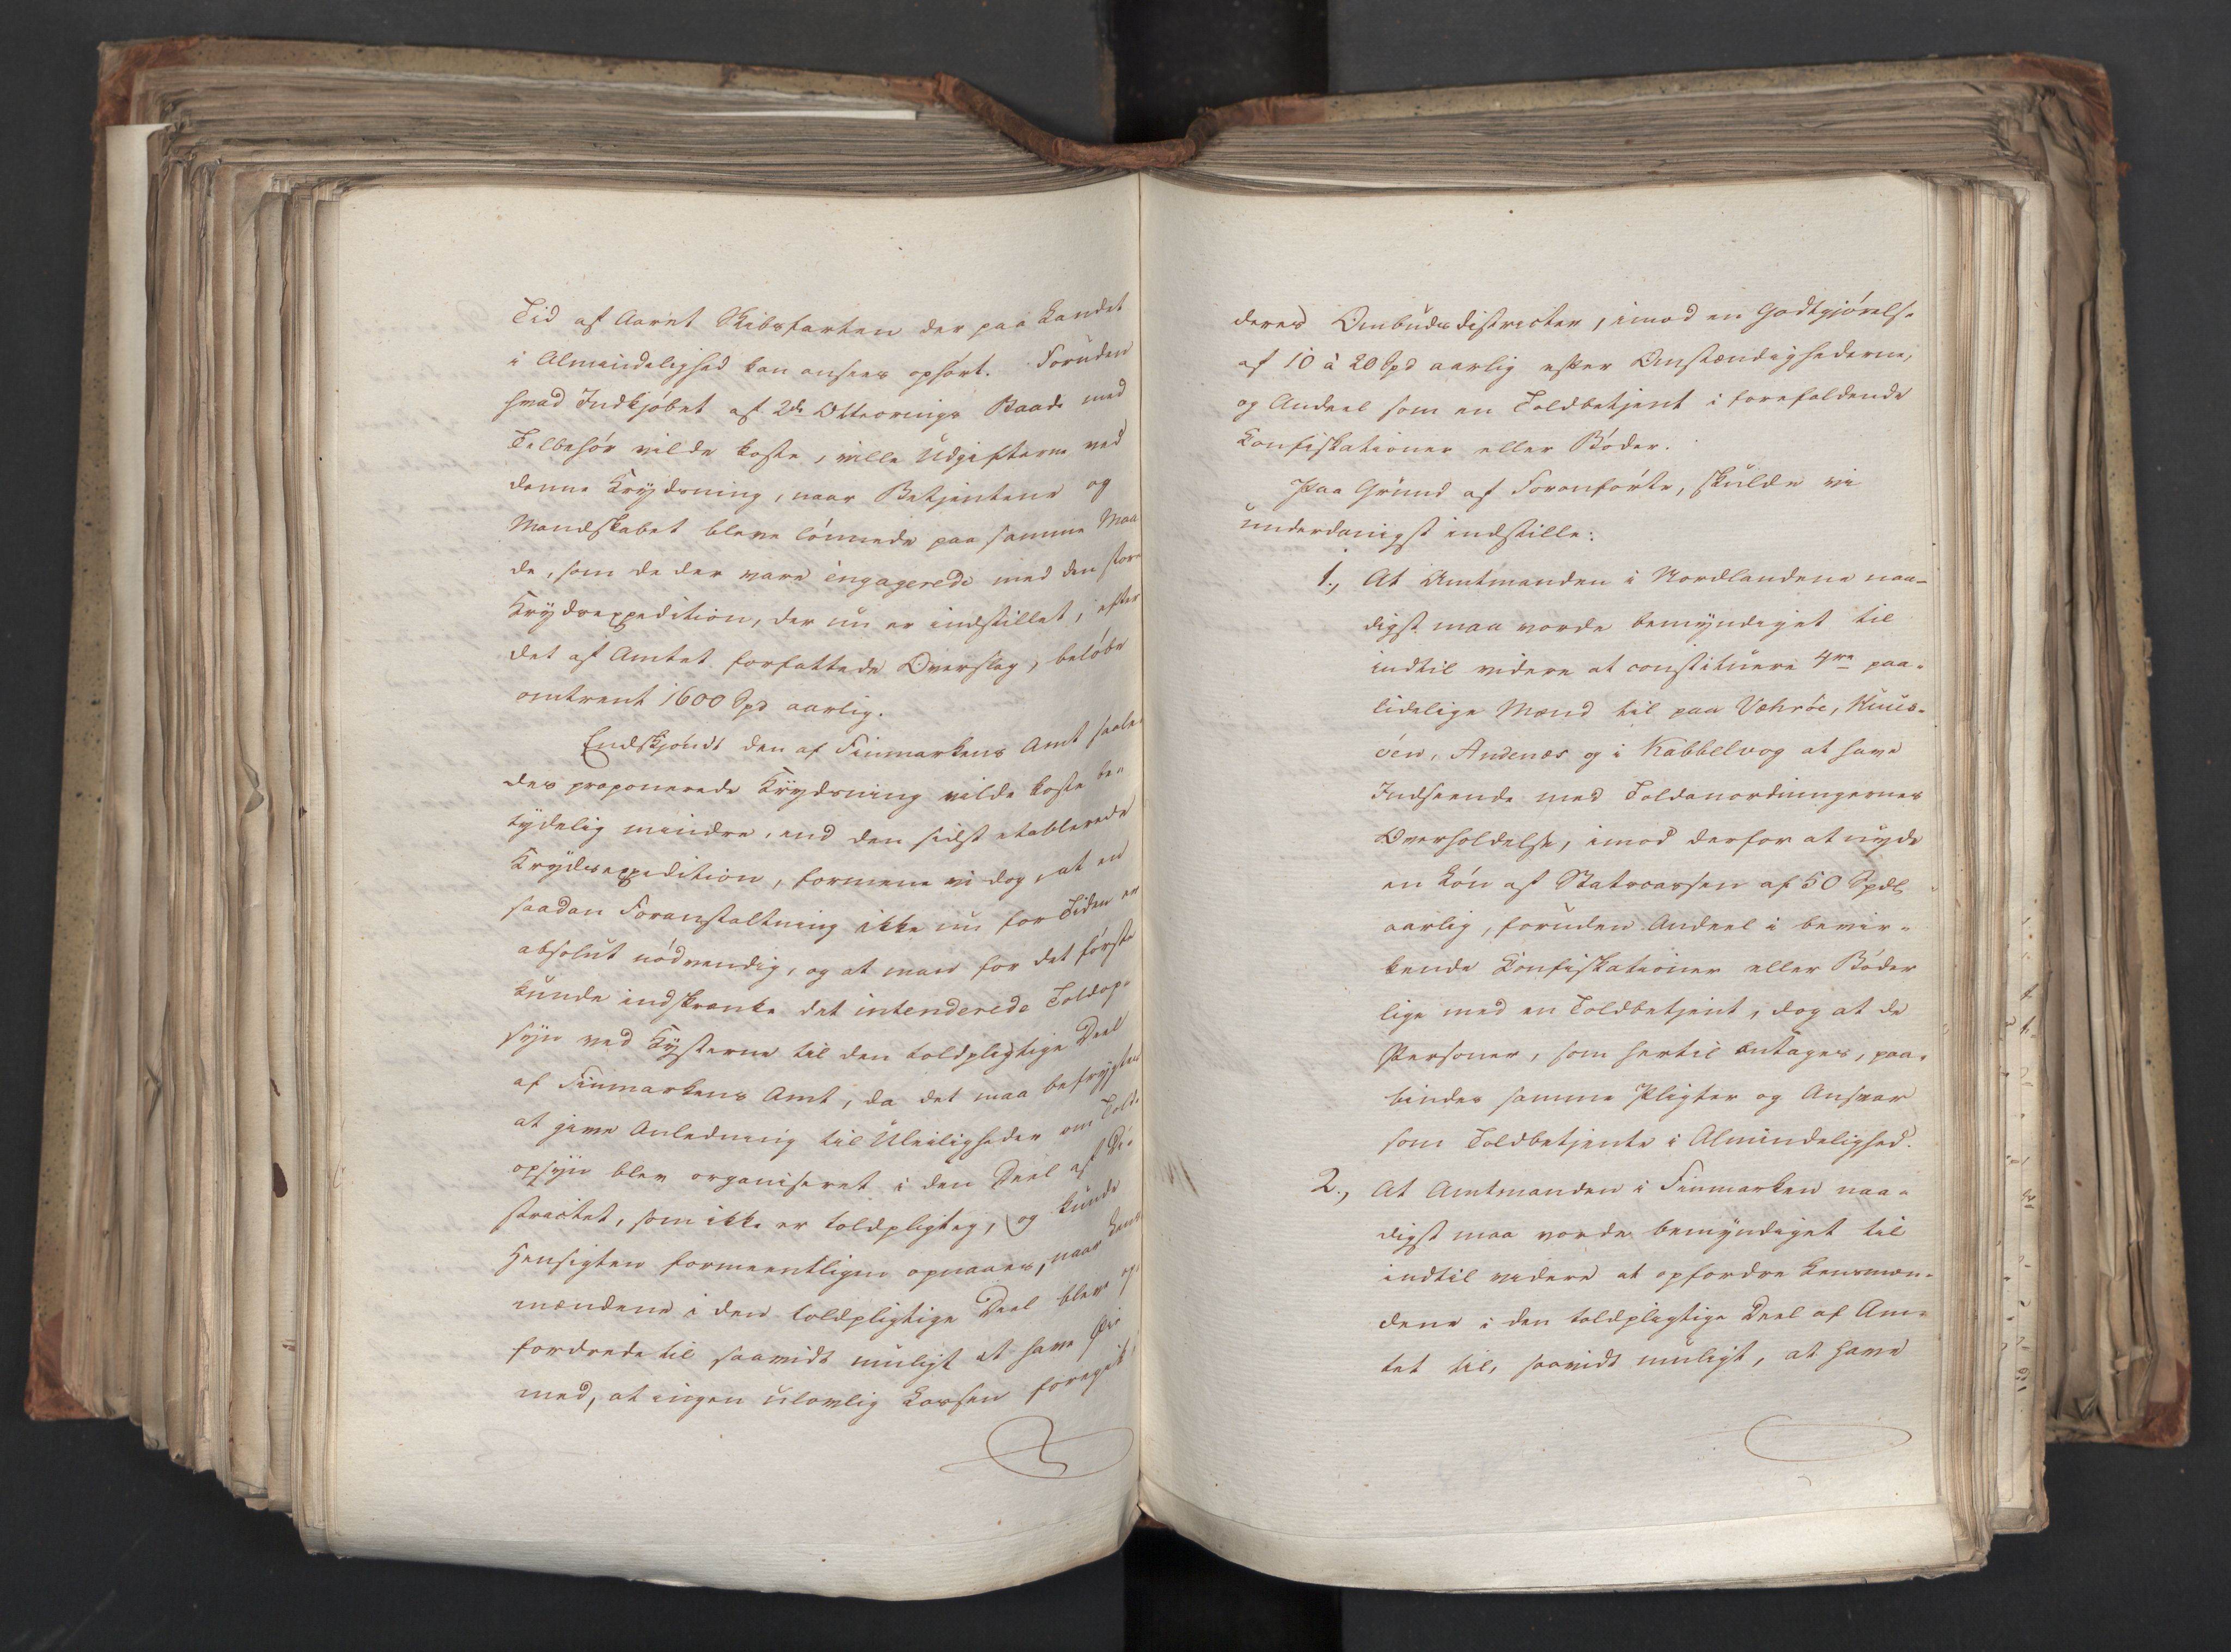 Tid af Aaret Skibsfarten der paa Landet
i Almindelighed kan ansees ophørt. Foruden
hvad Indkjøbet af 2de Otteorings Baade med
Tilbehør vilde koste, ville Udgifterne ved
denne Krydsning, naar Betjentene og
Mandskabet bleve lønnede paa samme Maa
de, som de der vare engagerede med den store
Krydsexpedition, der nu er indstillet, efter
det af Amtet forfattede Overslag, beløbe
omtrent 1600 Spd aarlig.
Endskjøndt den af Finmarkens Amt saale-
des proponerede Krydsning vilde koste be-
tydelig mindre, end den sidst etablerede
Krydsexpedition, formene vi dog, at en
saadan Foranstaltning ikke nu for Tiden er
absolut nødvendig, og at man for det første
kunde indskrænke det intenderede Toldop-
syn ved Kysterne til den toldpligtige Deel
af Finmarkens Amt, da det maa befrygtes
at give Anledning til Uleiligheder om Told-
opsyn blev organiseret i den Deel af Di-
strictet, som ikke er toldpligtig, og kunde
Hensigten formeentligen opnaaes, naar Lens-
mændene i den toldpligtige Deel bleve op-
fordrede til saavidt muligt at have Øie
med, at ingen ulovlig Lossen foregik i
deres Ombudsdistricter, imod en Godtgjørelse
af 10 à 20 Spd aarlig efter Omstændighederne,
og Andeel som en Toldbetjent i forefaldende
Confiskationer eller Bøder.
Paa Grund af Foranførte, skulde vi
underdanigst indstille:
1., At Amtmanden i Nordlandene naa-
digst maa vorde bemyndiget til
indtil videre at constituere 4re paa-
lidelige Mænd til paa Væhrøe, Kuus-
øen, Andenæs og i Kabbelvog at have
Indseende med Toldanordningernes
Overholdelse, imod derfor at nyde
en Løn af Statscassen af 50 Spdlr
aarlig, foruden Andeel i bevir-
kende Confiskationer eller Bøder
lige med en Toldbetjent, dog at de
Personer, som hertil antages, paa-
bindes samme Pligter og Ansvar
som Toldbetjente i Almindelighed.
2., At Amtmanden i Finmarken naa-
digst maa vorde bemyndiget til
indtil videre at opfordre Lensmæn-
dene i den toldpligtige Deel af Am-
tet til, saavidt muligt, at have